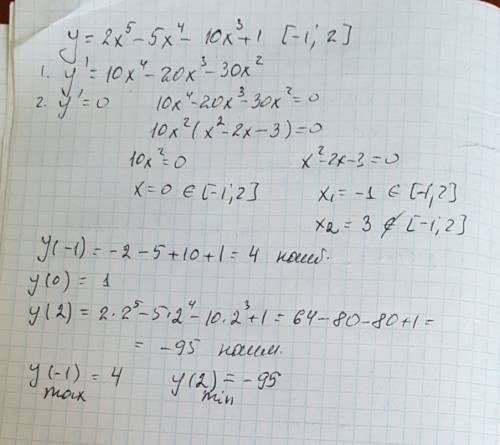 y = 2x⁵ - 5x⁴ - 10x³ + 1 [-1; 2]
1. y' = 10x⁴ - 20x³ - 30x²
2. y' = 0 10x⁴ - 20x³ - 30x² = 0
10x² (x² - 2x - 3) = 0
10x² = 0 x² - 2x - 3 = 0
x = 0 ∈ [-1; 2] x₁ = -1 ∈ [-1; 2]
x₂ = 3 ∉ [-1; 2]
y(-1) = -2 - 5 + 10 + 1 = 4 наиб.
y(0) = 1
y(2) = 2·2⁵ - 5·2⁴ - 10·2³ + 1 = 64 - 80 - 80 + 1 =
= -95 наим.
y(-1) = 4 y(2) = -95
max min